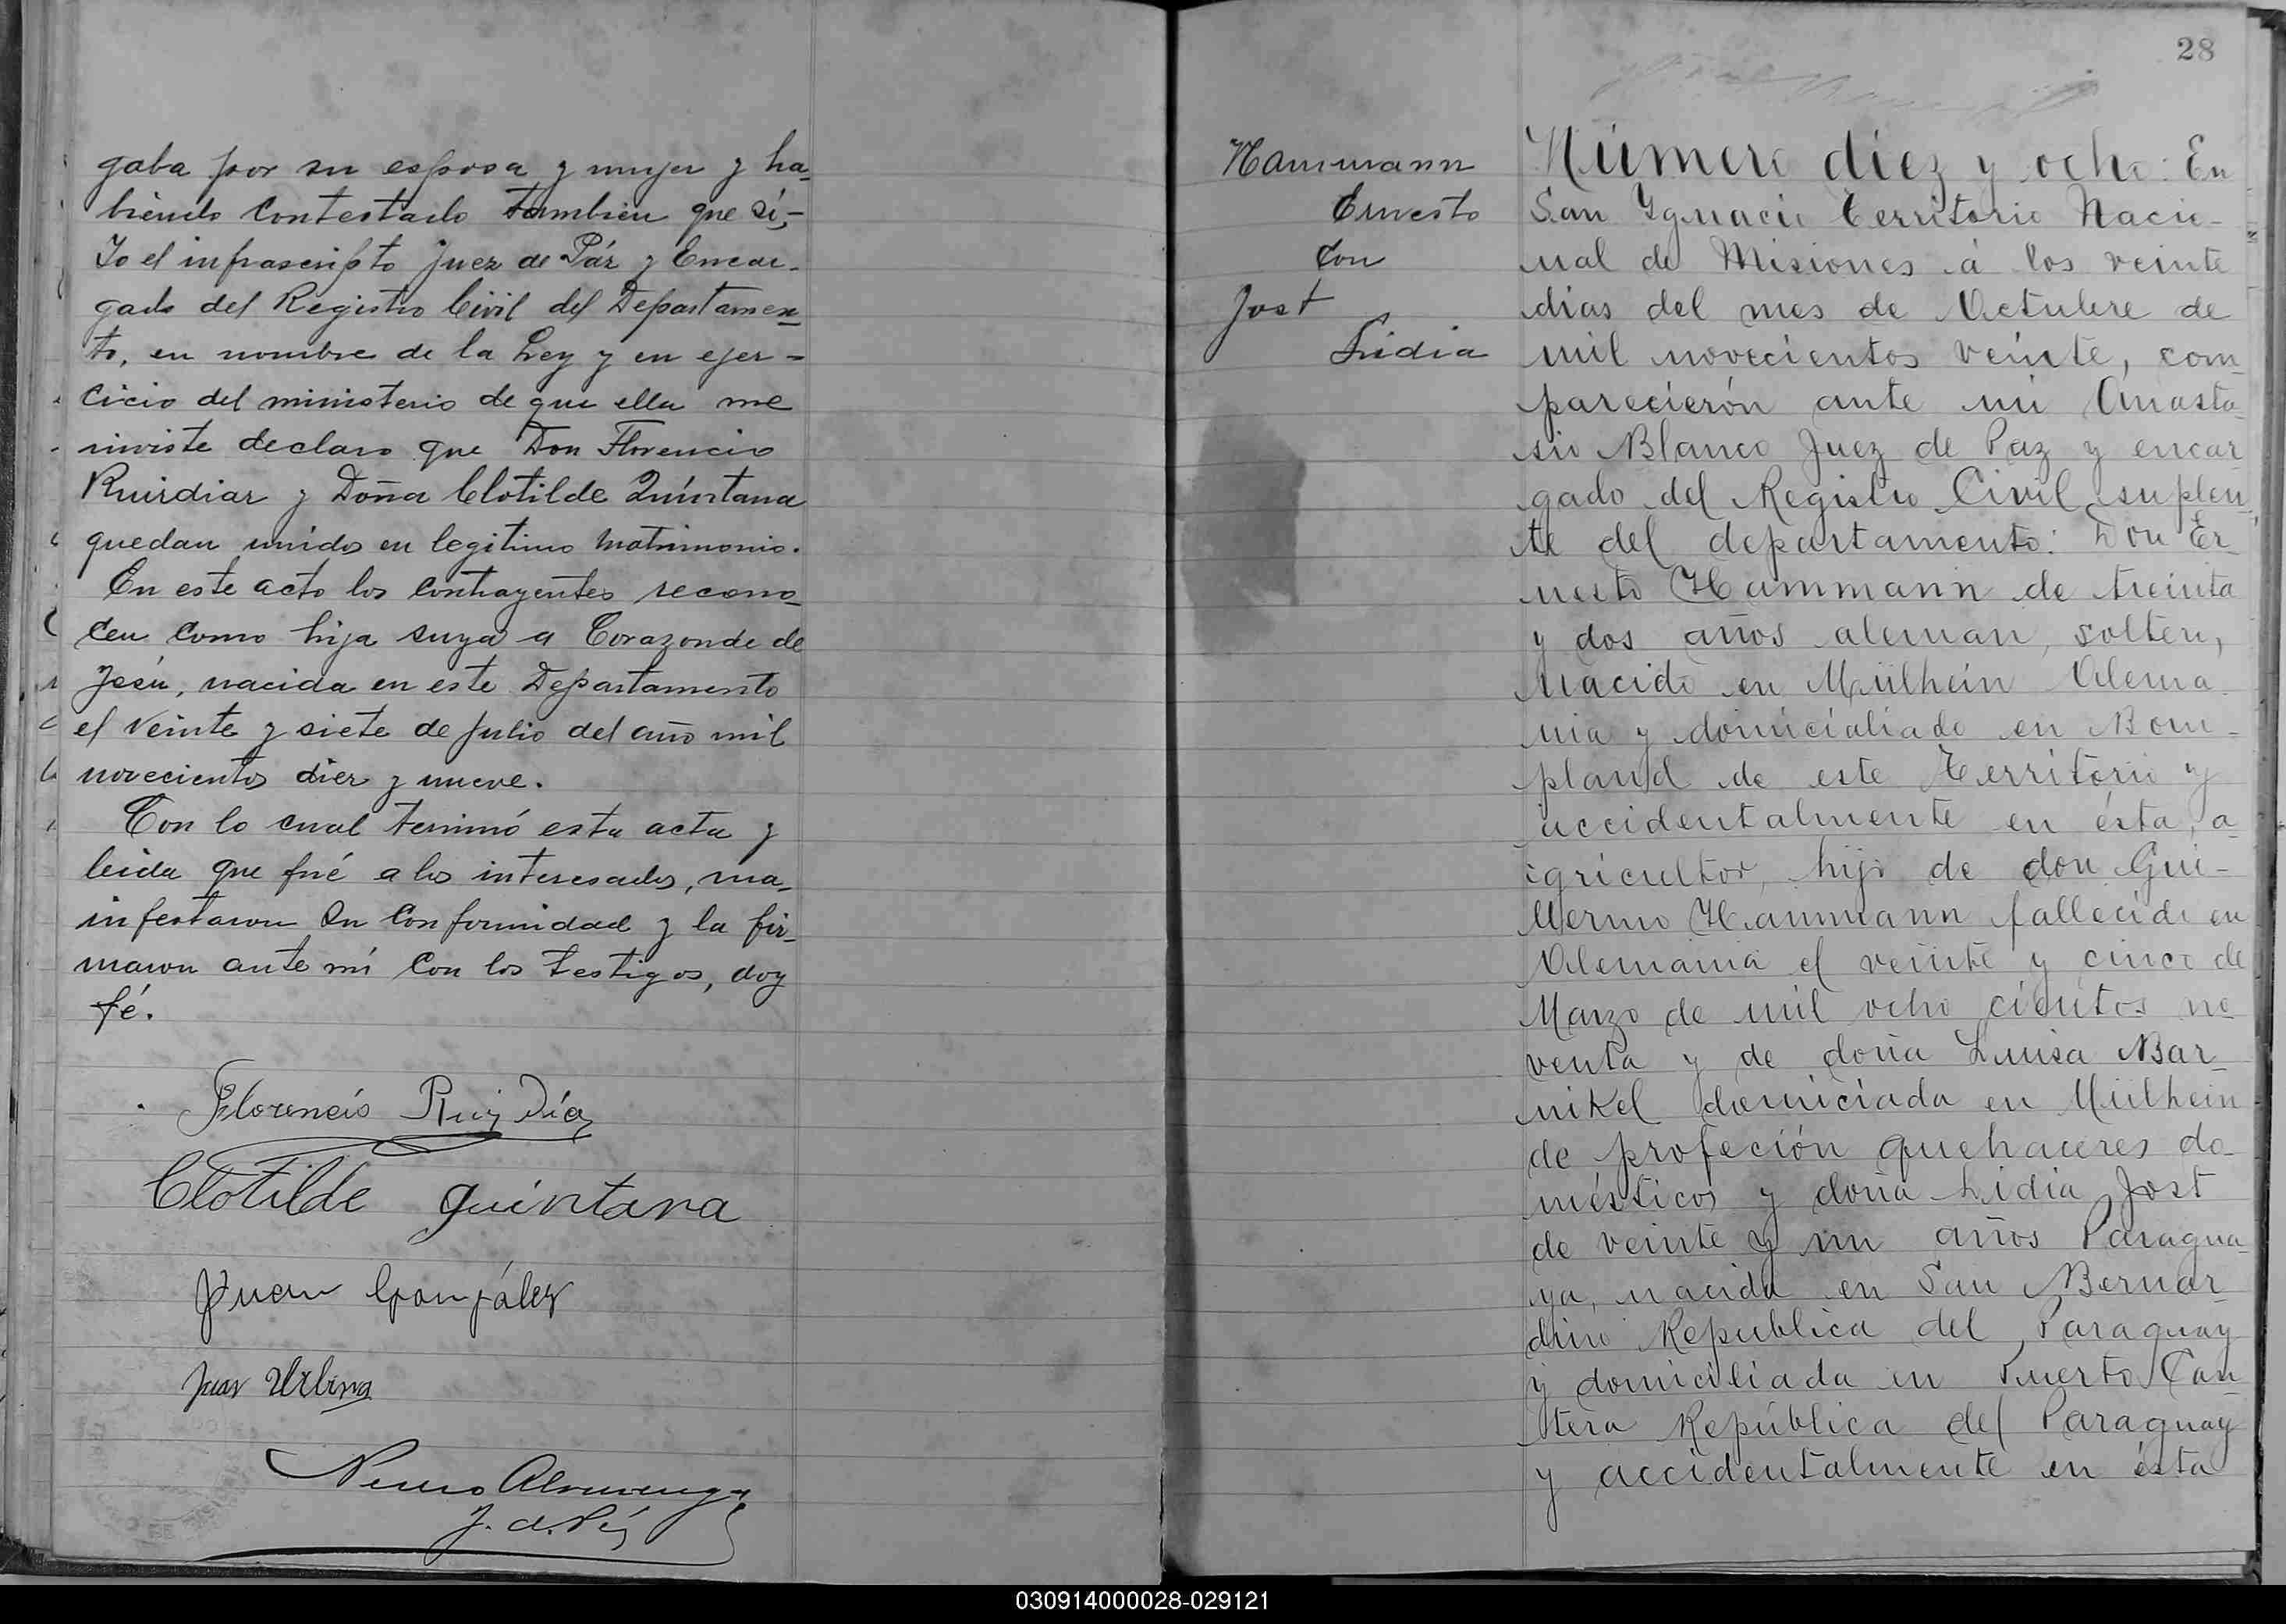 gaba por su esposa y mujer y ha-
biendo contestado tambien que sí,-
Yo el infrascripto Juez de Páz y Encar-
gado del Registro Civil del Departamen-
to, en nombre de la Ley y en ejer-
cicio del ministerio de que ella me
inviste declaro que Don Florencio
Ruirdiar y Doña Clotilde Quintana
quedan unidos en legitimo matrimonio.
En este acto los contrayentes recono-
cen como hija suya a Corazonde de
Jesú, nacida en este Departamento
el veinte y siete de Julio del año mil
novecientos diez y nueve.
Con lo cual terminó esta acta y
leida que fué a los interesados, ma-
infestaron su conformidad y la fir-
maron ante mí con los testigos, doy
fé.
Florencio Ruiz Díaz
Clotilde quintana
Juan González
Juan Urbina
J. de Páz
28
Hammann
Ernesto
con
Jost
Lidia
Número diez y ocho: En
San Ygnacio Territorio Nacio-
nal de Misiones á los veinte
dias del mes de Octubre de
mil novecientos veinte, com-
parecierón ante mi Anasta-
sio Blanco Juez de Paz y encar-
gado del Registro Civil suplen-
te del departamento: Don Er-
nesto Hammann de treinta
y dos años aleman, soltero,
nacido en Mülhein Alema-
nia y domicialiado en Bom-
pland de este Territorio y
accidentalmente en ésta, a-
gricultor, hijo de don Gui-
llermo Hammann fallecido en
Alemania el veinte y cinco de
Marzo de mil ocho cientos no-
venta y de doña Luisa Bar-
nikel domiciada en Mülhein
de profeción quehaceres do-
mésticos y doña Lidia Jost
de veinte y un años Paragua-
ya, nacida en San Bernar-
dino Republica del Paraguay
y domiciliada en Puerto Can-
tera República del Paraguay
y accidentalmente en ésta
030914000028-029121